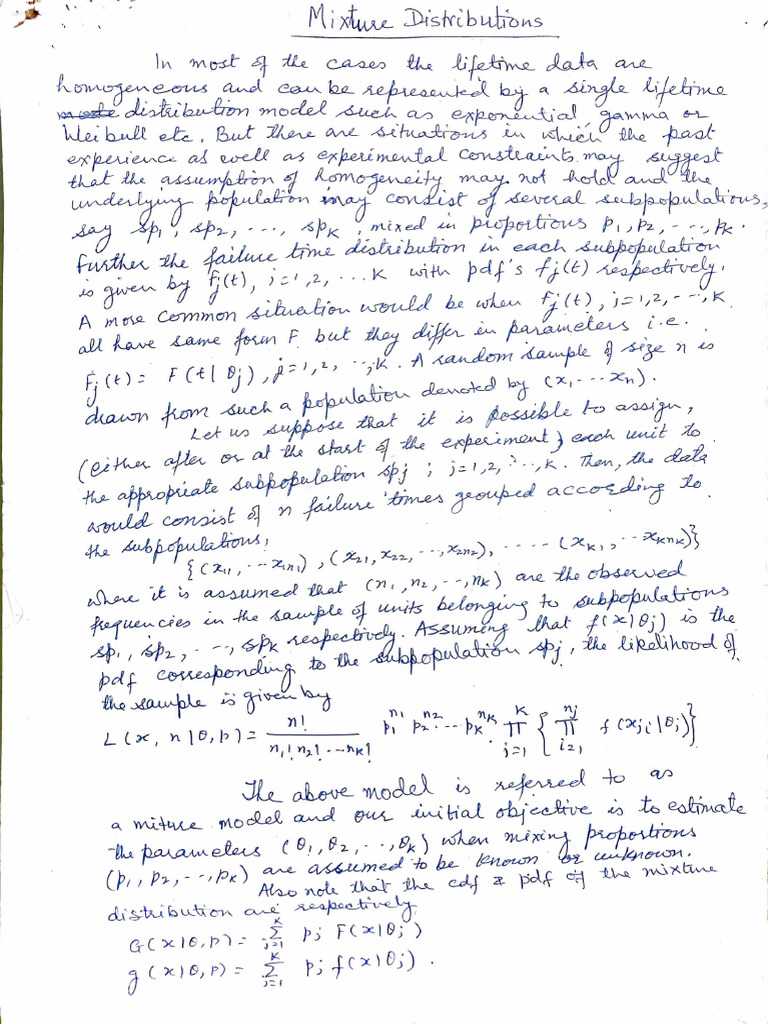 Mixture Distributions
In most of the cases the lifetime data are
homogeneous and can be represented by a single lifetime
distribution model such as exponential, gamma or
Weibull etc. But there are situations in which the past
experience as well as experimental constraints may suggest
that the assumption of homogeneity may not hold and the
underlying population may consist of several subpopulations,
say sp₁, sp₂, ..., spₖ, mixed in proportions p₁, p₂, ..., pₖ.
Further the failure time distribution in each subpopulation
is given by Fⱼ(t), j=1,2, ... K with pdf's fⱼ(t) respectively.
A more common situation would be when Fⱼ(t), j=1,2,--,K
all have same form F but they differ in parameters i.e.
Fⱼ(t) = F(t|θⱼ), j=1,2, ..,K. A random sample of size n is
drawn from such a population denoted by (x₁ ... xₙ).
Let us suppose that it is possible to assign,
(either after or at the start of the experiment) each unit to
the appropriate subpopulation spⱼ; j=1,2, ..,K. Then, the data
would consist of n failure times grouped according to
the subpopulations,
{(x₁₁, ... x₁ₙ₁), (x₂₁, x₂₂, ..., x₂ₙ₂), ..... (xₖ₁, ... xₖₙₖ)}
where it is assumed that (n₁, n₂, --, nₖ) are the observed
frequencies in the sample of units belonging to subpopulations
sp₁, sp₂, --, spₖ respectively. Assuming that f(x|θⱼ) is the
pdf corresponding to the subpopulation spⱼ, the likelihood of
the sample is given by
L(x, n|θ,p) = n!/(n₁! n₂! ... nₖ!) p₁^n₁ p₂^n₂ ... pₖ^nₖ ∏_{j=1}^{K} { ∏_{i=1}^{nⱼ} f(xⱼᵢ|θⱼ)}
The above model is referred to as
a miture model and our initial objective is to estimate
the parameters (θ₁, θ₂, .., θₖ) when mixing proportions
(p₁, p₂, --, pₖ) are assumed to be known or unknown.
Also note that the cdf & pdf of the mixture
distribution are respectively
G(x|θ,p) = ∑_{j=1}^{K} pⱼ F(x|θⱼ)
g(x|θ,p) = ∑_{j=1}^{K} pⱼ f(x|θⱼ).